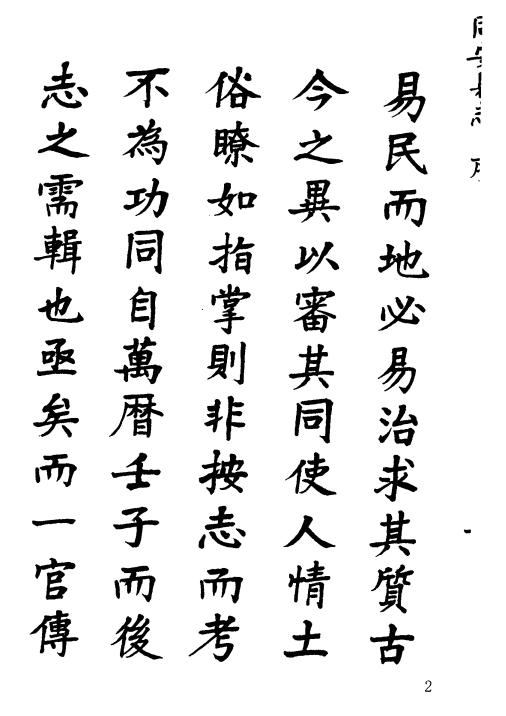 易民而地必易治求其質古
今之異以審其同使人情土
俗瞭如指掌則非按志而考
不為功同自萬曆壬子而後
志之需輯也亟矣而一官傳
2